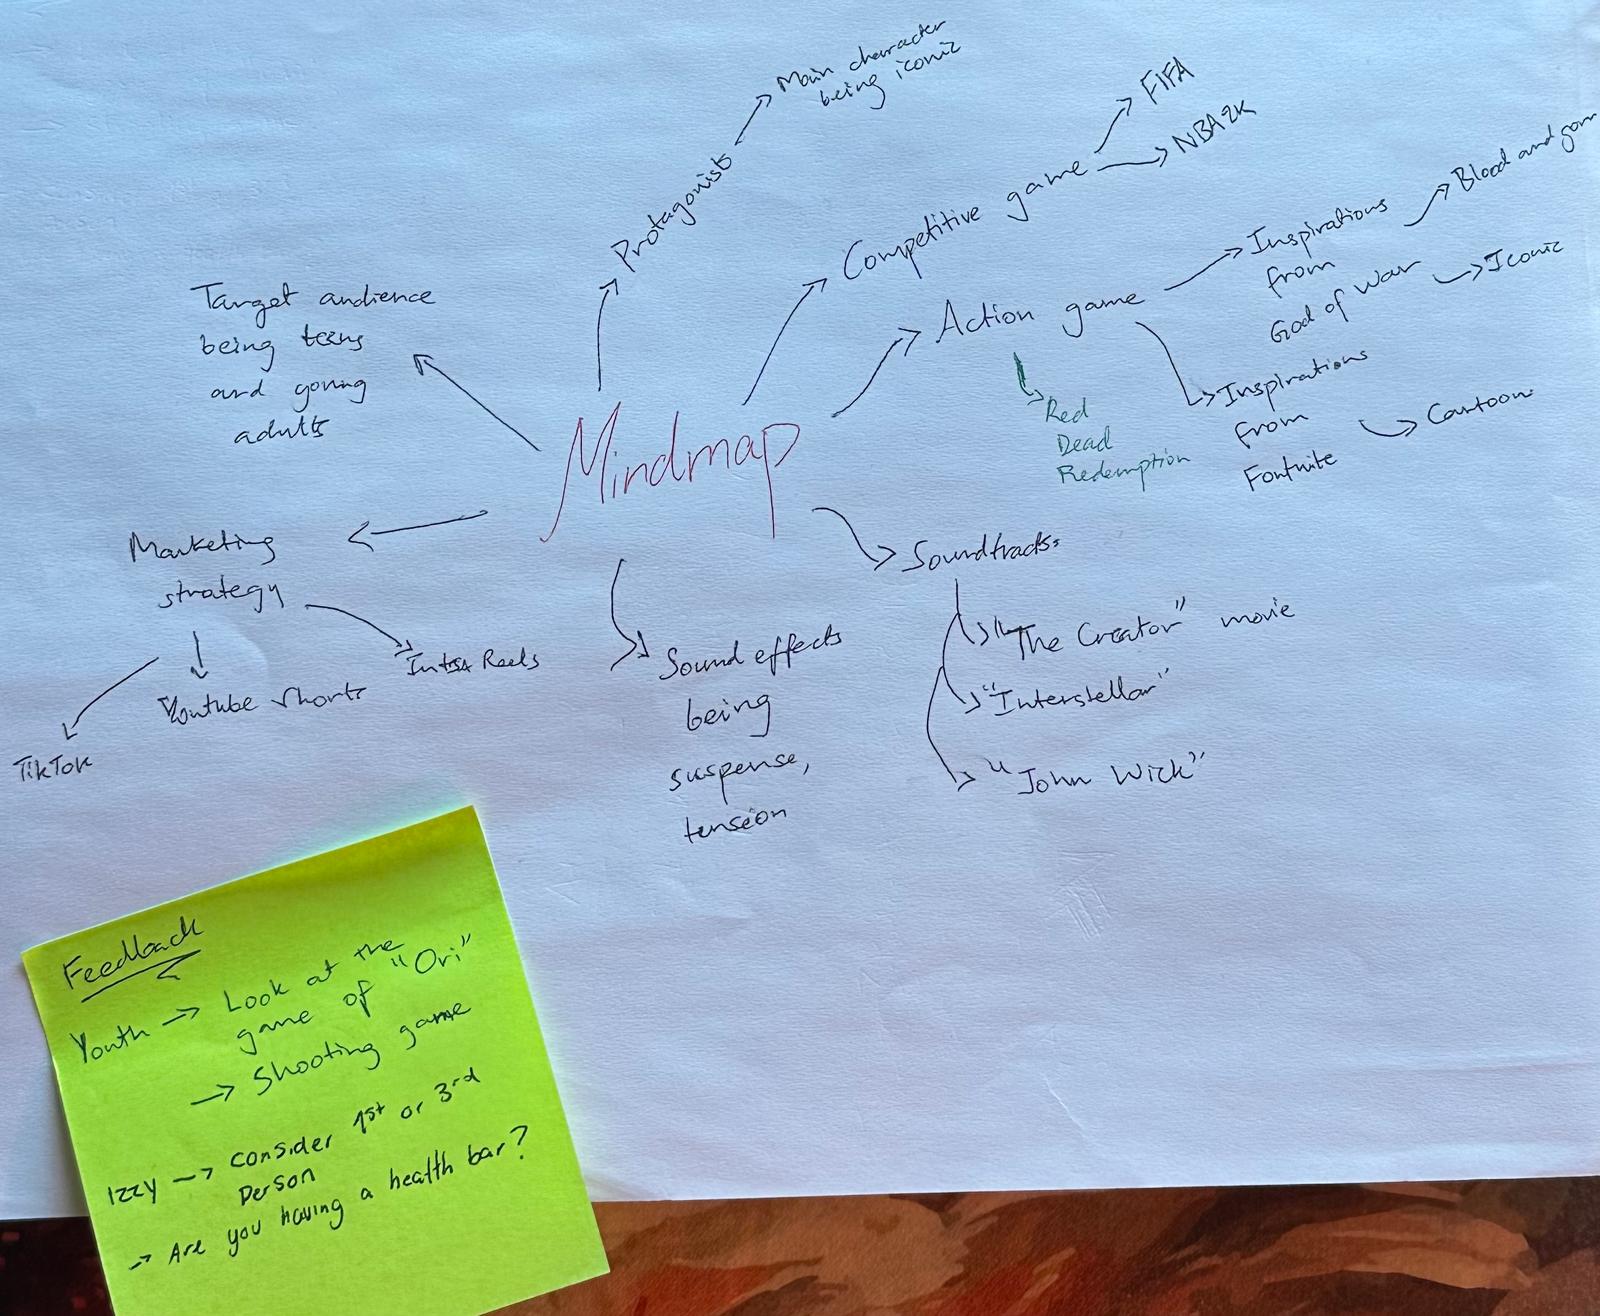 Mindmap
Protagonists
Main character
being iconic
Competitive game
FIFA
NBA2K
Action game
Inspirations
from
God of War
Blood and gore
Iconic
Inspirations
from
Fortnite
Cartoon
Red
Dead
Redemption
Soundtracks
"The Creator" movie
"Interstellar"
"John Wick"
Sound effects
being
suspense,
tension
Target audience
being teens
and young
adults
Marketing
strategy
TikTok
Youtube Shorts
Reels
Feedback
Youth → Look at the
game of "Ori"
→ Shooting game
Izzy → consider 1st or 3rd
person
→ Are you having a health bar?